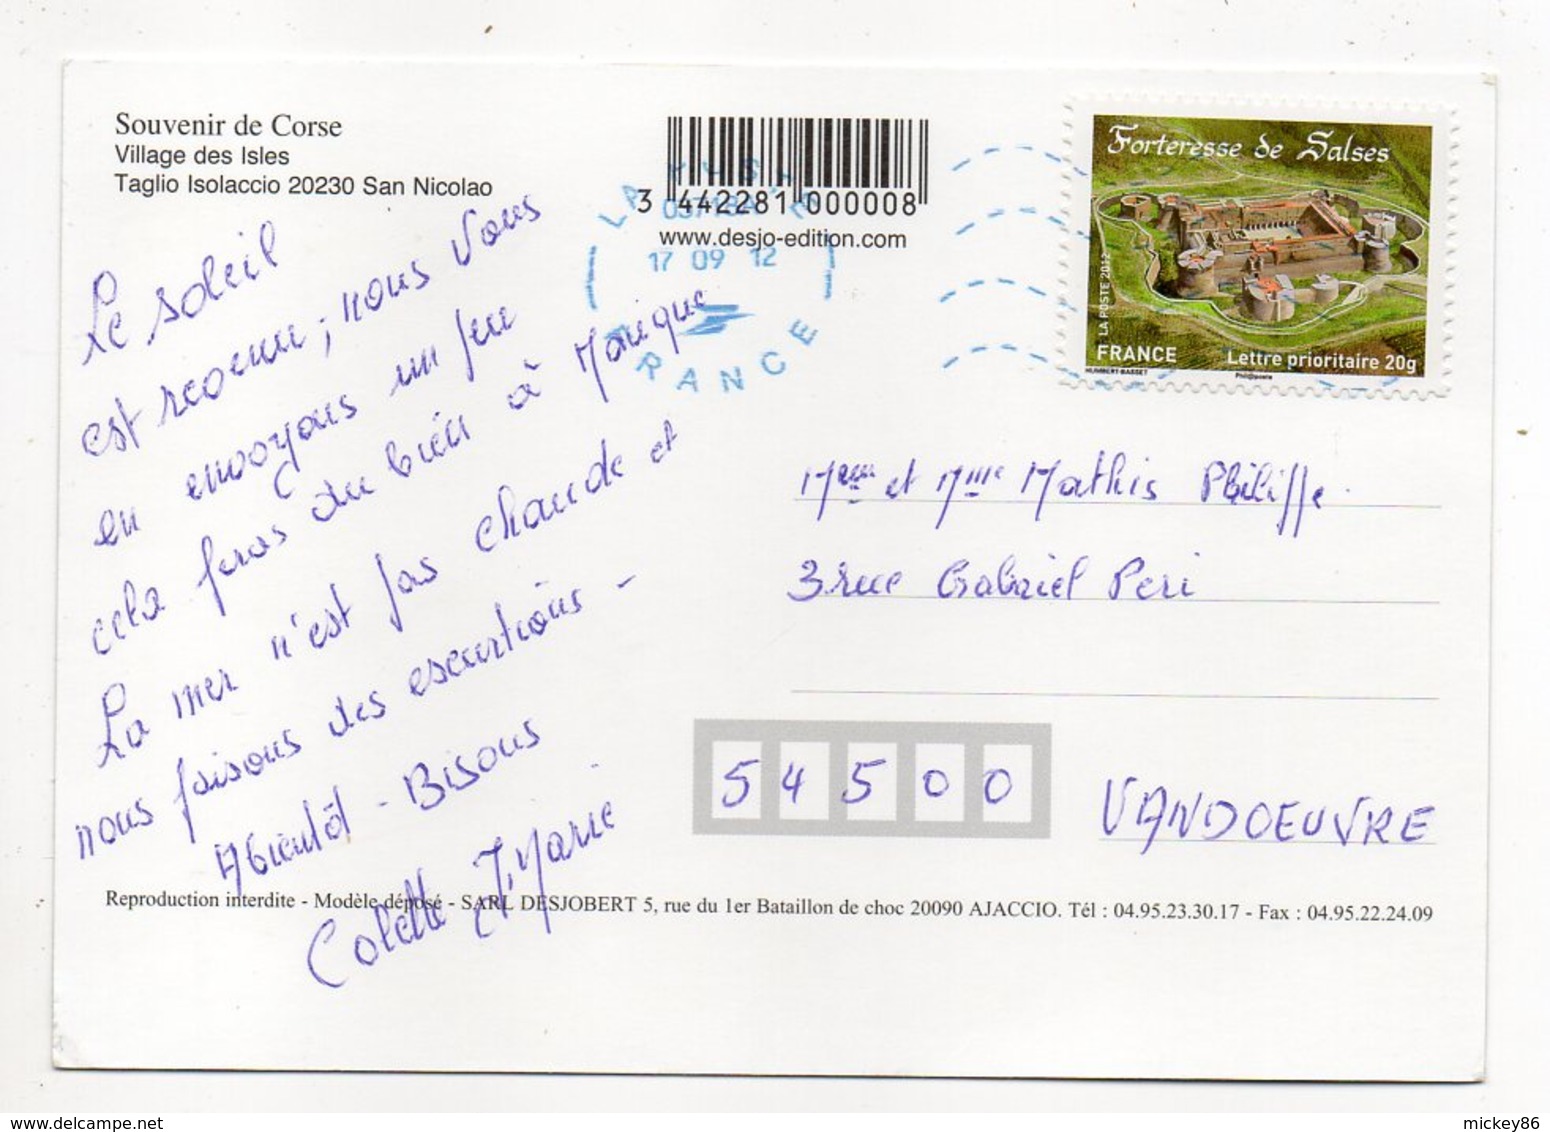 Souvenir de Corse
Village des Isles
Taglio Isolaccio 20230 San Nicolao
3 442281 000008
www.desjo-edition.com
LA POSTE
03718A
17 09 12
FRANCE
Forteresse de Salses
LA POSTE 2012
FRANCE
Lettre prioritaire 20g
HUMBERT-BASSET
Phil@poste
Le soleil
est revenu ; nous vous
en envoyons un peu
cela feras du bien à Monique
La mer n'est pas chaude et
nous faisons des escurtions -
Abientôt - Bisous
Colette J. Marie
et Mme Mathis Philippe.
3 rue Gabriel Peri
54500
VANDOEUVRE
Reproduction interdite - Modèle déposé - SARL DESJOBERT 5, rue du 1er Bataillon de choc 20090 AJACCIO. Tél : 04.95.23.30.17 - Fax : 04.95.22.24.09
mickey86